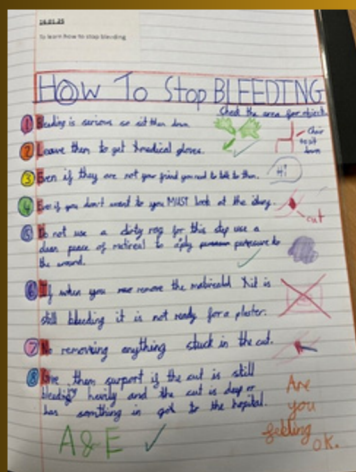 16.01.25
To learn how to stop bleeding
HOW TO STOP BLEEDING
Check the area for object.
1 Bleeding is serious so sit them down.
Chair to sit down
2 Leave them to get medical gloves.
3 Even if they are not your friend you need to talk to them.
Hi
4 Even if you don't want to you MUST look at the
cut
5 Do not use a dirty rag for this step use a
clean peace of to aply to
the wound.
6 If when you remove the it is
still bleeding it is not ready for a plaster.
7 No removing anything stuck in the cut.
8 Give them surport if the cut is still
bleeding and the cut is deep or
has somthing in it got to the hospital.
A&E
Are
you
feeling
OK.